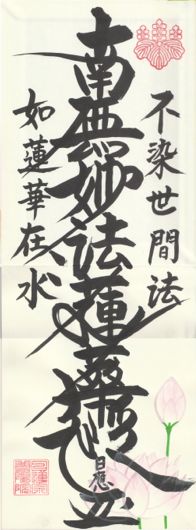 不染世間法
南無妙法蓮華経
如蓮華在水
日應